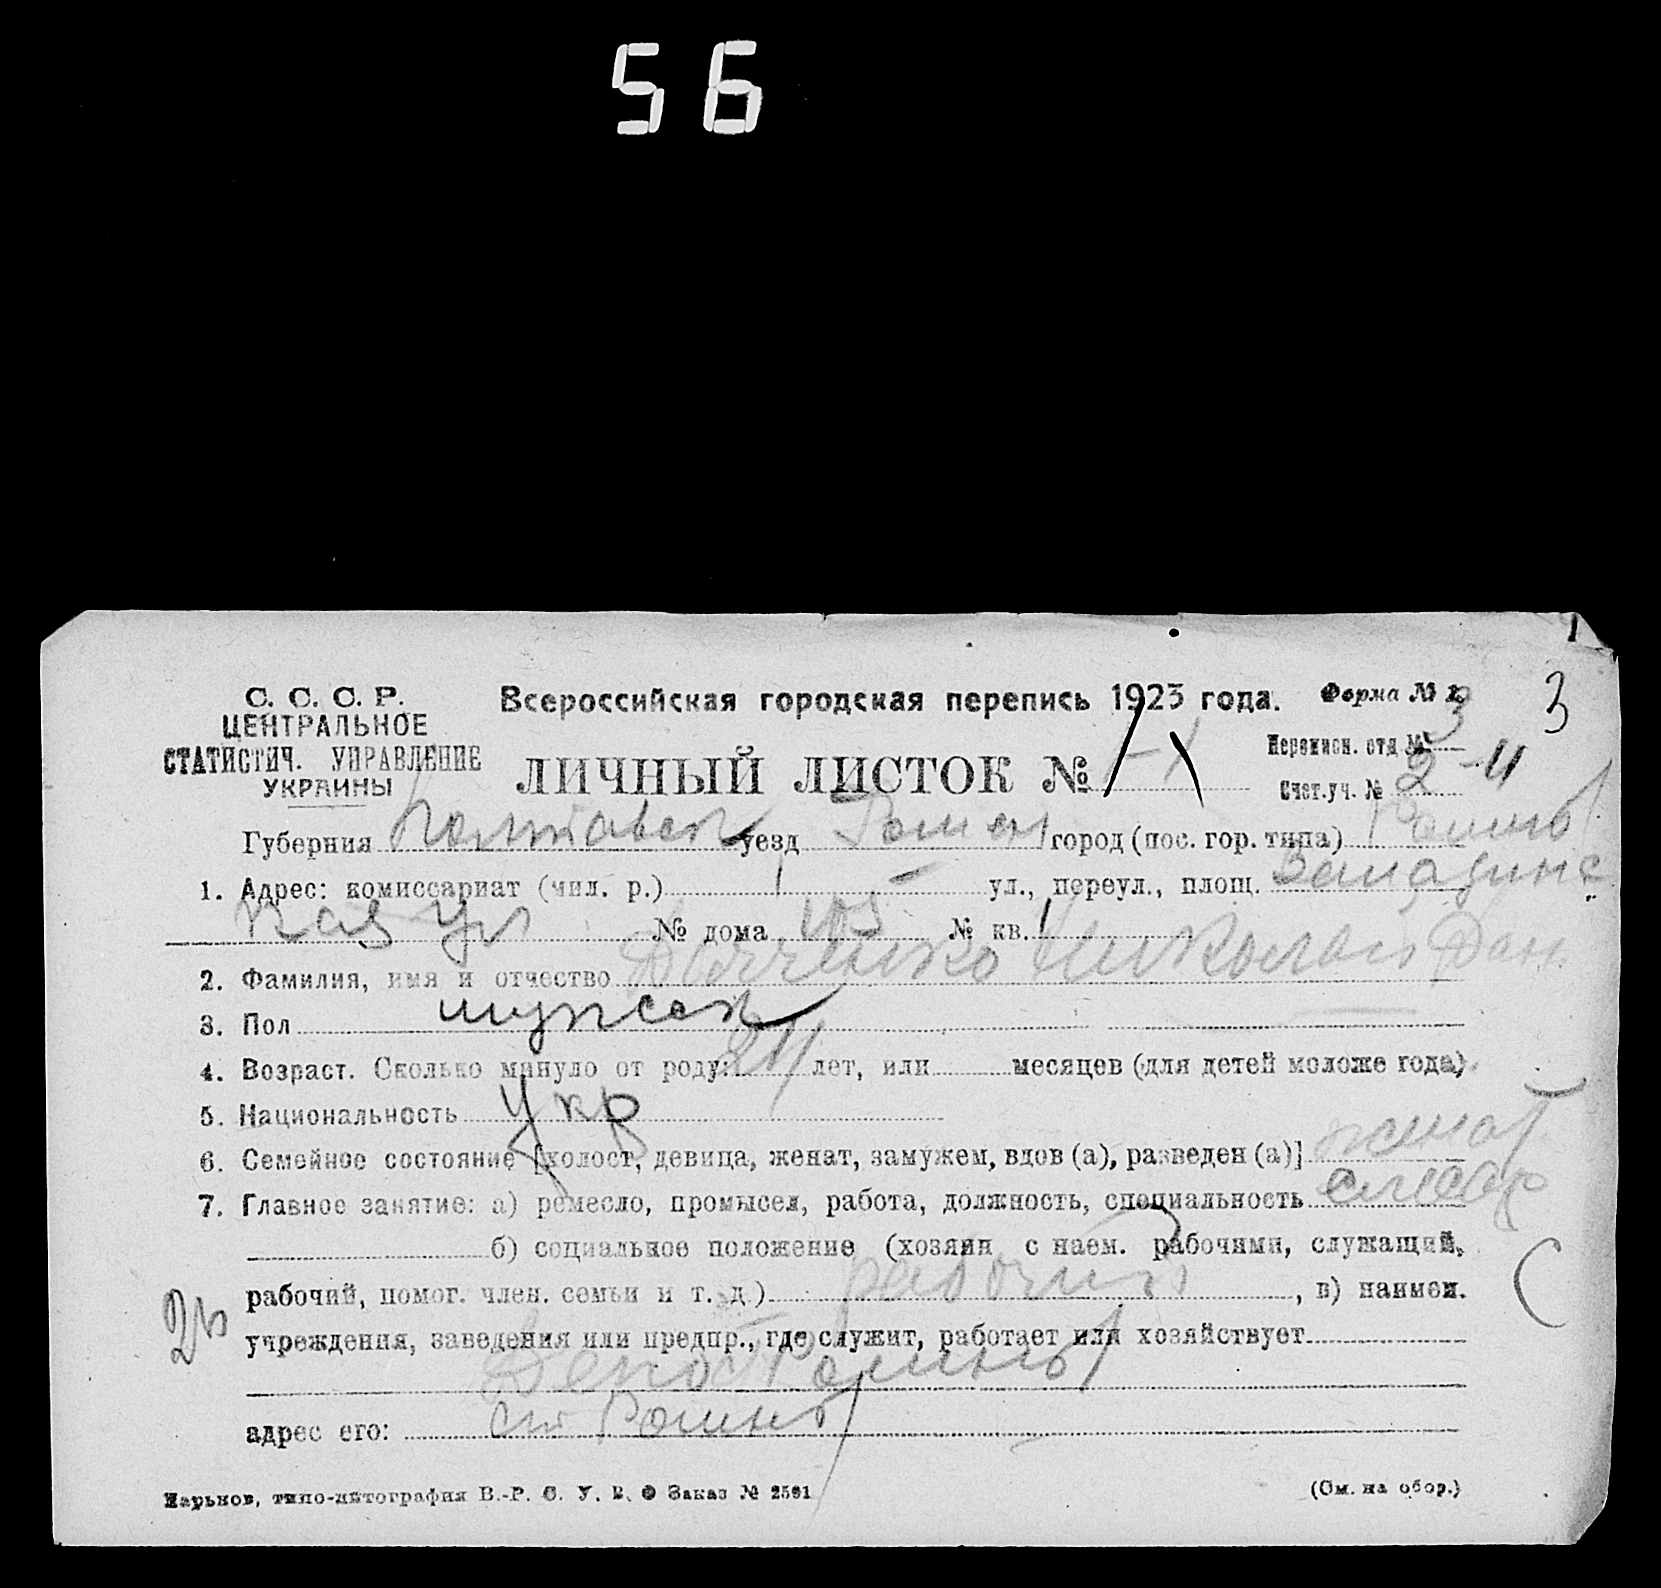 56
1
С. С. С. Р.
ЦЕНТРАЛЬНОЕ
СТАТИСТИЧ. УПРАВЛЕНИЕ
УКРАИНЫ
Всероссийская городская перепись 1923 года.
Форма № 1.
3
ЛИЧНЫЙ ЛИСТОК №
Переписн. отд. № 3
Счет. уч. № 2 - 11
Губерния Полтавск уезд Ромен город (пос. гор. типа) Ромны
1. Адрес: комиссариат (мил. р.) 1 ул., переул., площ.
кая ул № дома 105 № кв. 1
2. Фамилия, имя и отчество Дяченко Николай Дан
3. Пол мужск
4. Возраст. Сколько минуло от роду: лет, или месяцев (для детей моложе года)
5. Национальность Укр
6. Семейное состояние [холост, девица, женат, замужем, вдов (а), разведен (а)] женат
7. Главное занятие: а) ремесло, промысел, работа, должность, специальность слесар
б) социальное положение (хозяин с наем. рабочими, служащий,
рабочий, помог. член. семьи и т. д.) рабочий, в) наимен.
учреждения, заведения или предпр., где служит, работает или хозяйствует
Депо ст Ромны
адрес его: ст Ромны
Харьков, типо-литография В.-Р. С. У. В. О Заказ № 2591
(См. на обор.)